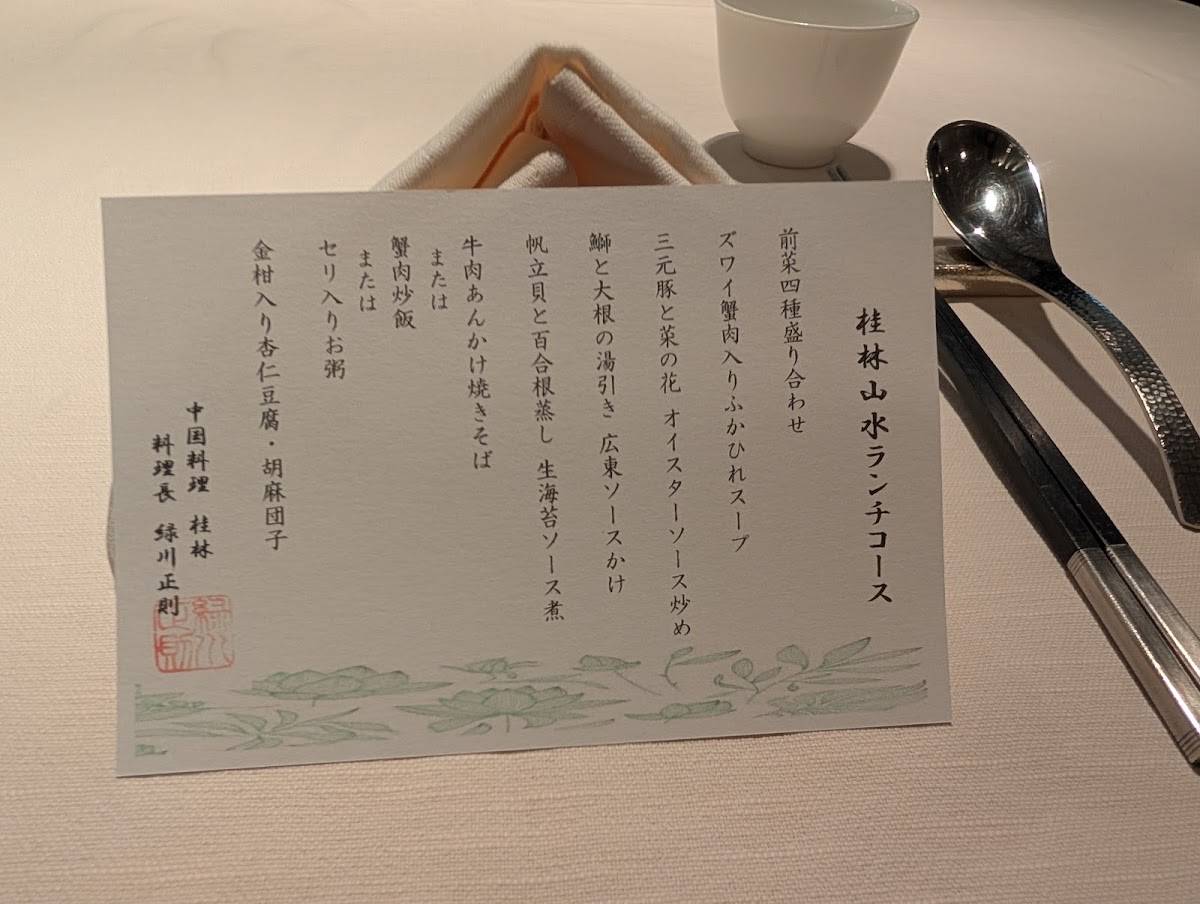 桂林山水ランチコース
前菜四種盛り合わせ
ズワイ蟹肉入りふかひれスープ
三元豚と菜の花 オイスターソース炒め
鰤と大根の湯引き 広東ソースかけ
帆立貝と百合根蒸し 生海苔ソース煮
牛肉あんかけ焼きそば
または
蟹肉炒飯
または
セリ入りお粥
金柑入り杏仁豆腐・胡麻団子
中国料理 桂林
料理長 緑川正則
緑川
正則